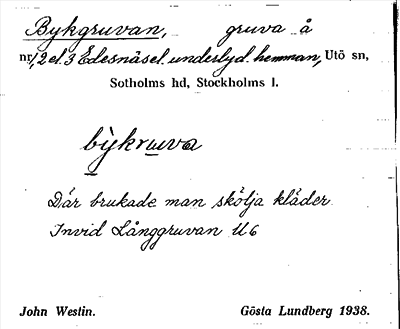 Bykgruvan, gruva å
nr 1, 2 el. 3 Edesnäsel. underlyd. hemman, Utö sn,
Sotholms hd, Stockholms l.
bỳkruva
Där brukade man skölja kläder.
Invid Långgruvan U6
John Westin. Gösta Lundberg 1938.